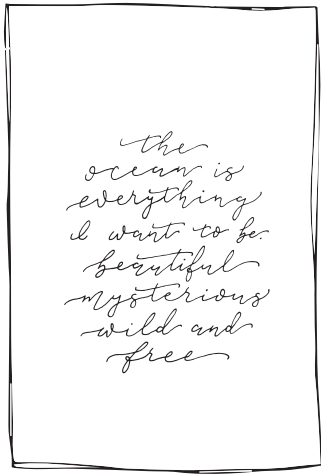 the
ocean is
everything
I want to be.
beautiful
mysterious
wild and
free